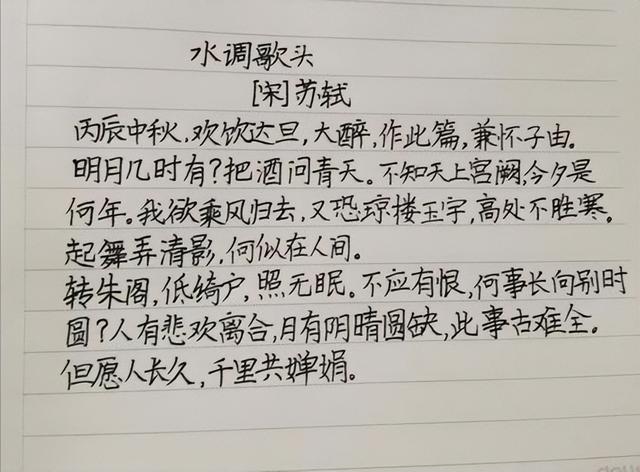 水调歌头
[宋]苏轼
丙辰中秋,欢饮达旦,大醉,作此篇,兼怀子由。
明月几时有?把酒问青天。不知天上宫阙,今夕是
何年。我欲乘风归去,又恐琼楼玉宇,高处不胜寒。
起舞弄清影,何似在人间。
转朱阁,低绮户,照无眠。不应有恨,何事长向别时
圆?人有悲欢离合,月有阴晴圆缺,此事古难全。
但愿人长久,千里共婵娟。